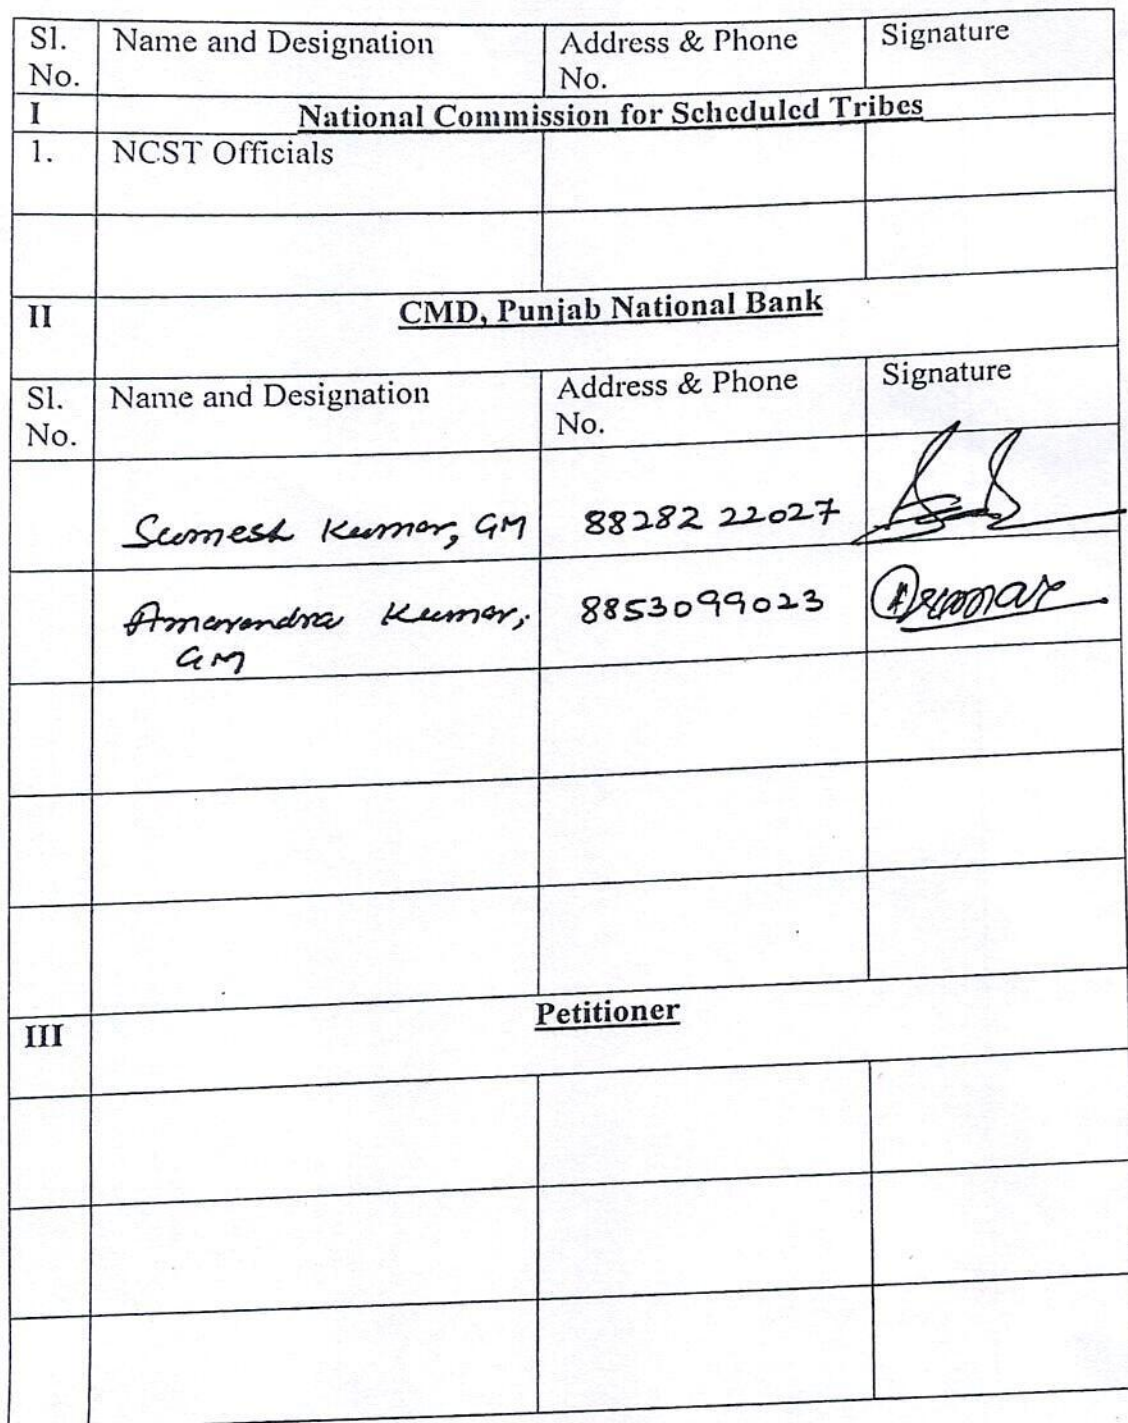 Sl. No. Name and Designation Address & Phone No. Signature
I National Commission for Scheduled Tribes
1. NCST Officials
II CMD, Punjab National Bank
Sl. No. Name and Designation Address & Phone No. Signature
Sumesh Kumar, GM 88282 22027
Amarendra Kumar, GM 8853099023
III Petitioner